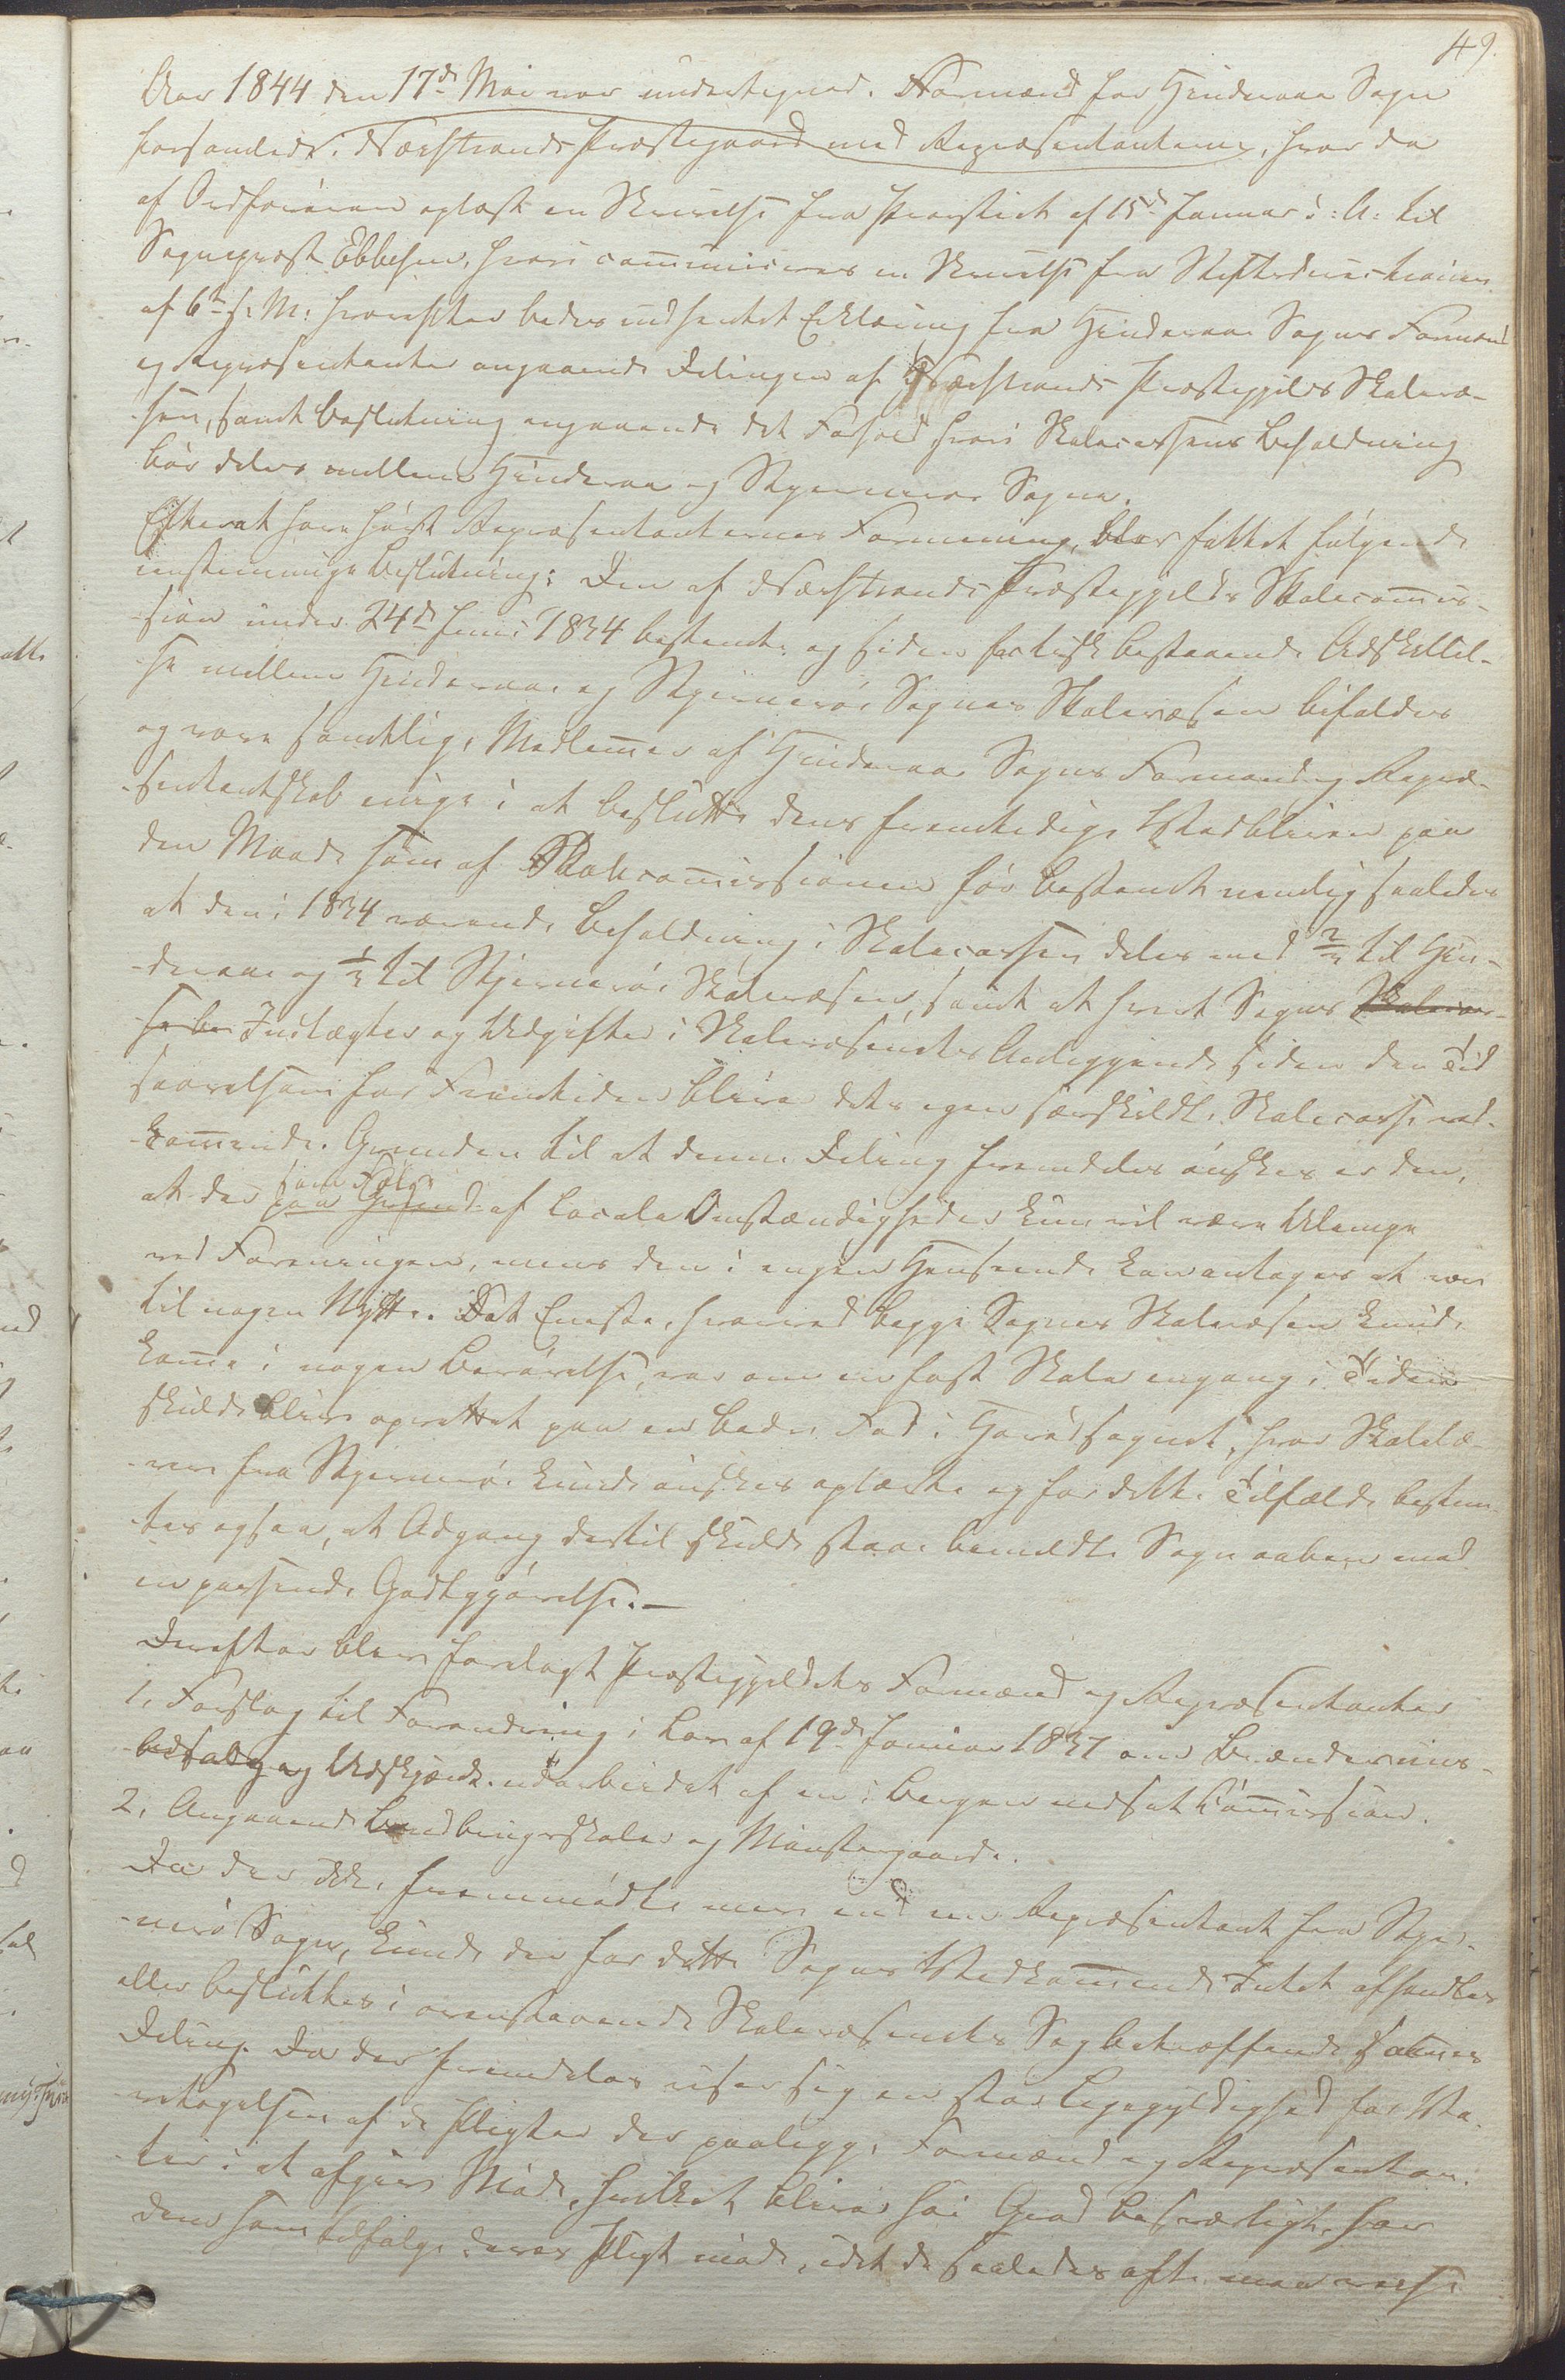 49.
Aar 1844 den 17de Mai var undertegned. Formænd for Hinderaa Sogn
forsamlede i Nærstrands Præstegaard med Repræsentanterne, hvor da
af Ordføreren oplæst en Skrivelse fra Provstiet af 15de Januar d: A: til
Sognepræst Ebbesen, hvori communiceres en Skrivelse fra Stiftsdirectionen
af 6te s: M: hvorefter bedes indhentet Erklæring fra Hinderaa Sogns Formænd
og Repræsentanter angaaende Delingen af Nærstrands Præstegjelds Skolevæ-
sen, samt Beslutning angaaende det Forhold hvori Skolecassens Beholdning
bør deles mellem Hinderaa og Skjernerøe Sogne.
Efterat have hørt Repræsentanternes Formening, blev fattet følgende
eenstemmige Beslutning: Den af Nærstrands Præstegjelds Skolecommis-
sion under 24de Juni 1834 bestemte og siden factisk bestaaende Adskillel-
se mellem Hinderaae og Skjernerøe Sognes Skolevæsen bifaldes
og vare samtlige Medlemmer af Hinderaae Sogns Formænd og Repræ-
sentantskab enige i at beslutte dens fremtidige Vedbliven paa
den Maade som af Skolecommissionen før bestemt nemlig saaledes
at den i 1834 værende Beholdning i Skolecassen deles med 2/3 til Hin-
deraae og 1/3 til Skjernerøe Skolevæsen, samt at hvert Sogns Skolecas-
se ber Indtægter og Udgifter i Skolevæsenets Anliggende siden den Tid
saavelsom for Fremtiden blive dets egen særskildte Skolecasse ved-
kommende. Grunden til at denne Deling fremdeles ønskes er den,
som Følge
at der paa Grund af locale Omstændigheder kun vil være Ulempe
ved Foreningen, mens den i ingen Henseende kan antages at være
til nogen Nytte. Det Eneste, hvorved begge Sognes Skolevæsen kunde
komme i nogen Berørelse, var om en fast Skole engang i Tiden
skulde blive oprettet paa en bedre Fod i Hovedsognet, hvor Skolelæ-
rere fra Skjernerøe kunde ønskes oplærte og for dette Tilfælde bestem-
tes ogsaa, at Adgang dertil skulde staae bemeldte Sogn aaben mod
en passende Godtgjørelse.—
Derefter blev forelagt Præstegjeldets Formænd og Repræsentanter
1, Forslag til Forandring i Lov af 19de Januar 1837 om Brændeviins-
Udsalg og Udskjænk. udarbeidet af en i Bergen nedsat Commission.
2, Angaaende Landbrugsskoler og Mønstergaarde.
Da der ikke fremmødte mere end een Repræsentant fra Skjer-
nerø Sogn, kunde der for dette Sogns Vedkommende Intet afhandles
eller besluttes i ovenstaaende Skolevæsenets Sag betræffende sammes
Deling. Da der fremdeles viser sig en stor Ligegyldighed for Va-
retagelsen af de Pligter der paaligge Formænd og Repræsentan-
ter i at afgive Møde, hvilket bliver høi Grad besværligt for
dem som ifølge deres Pligt møde, idet de saaledes ofte maa reise